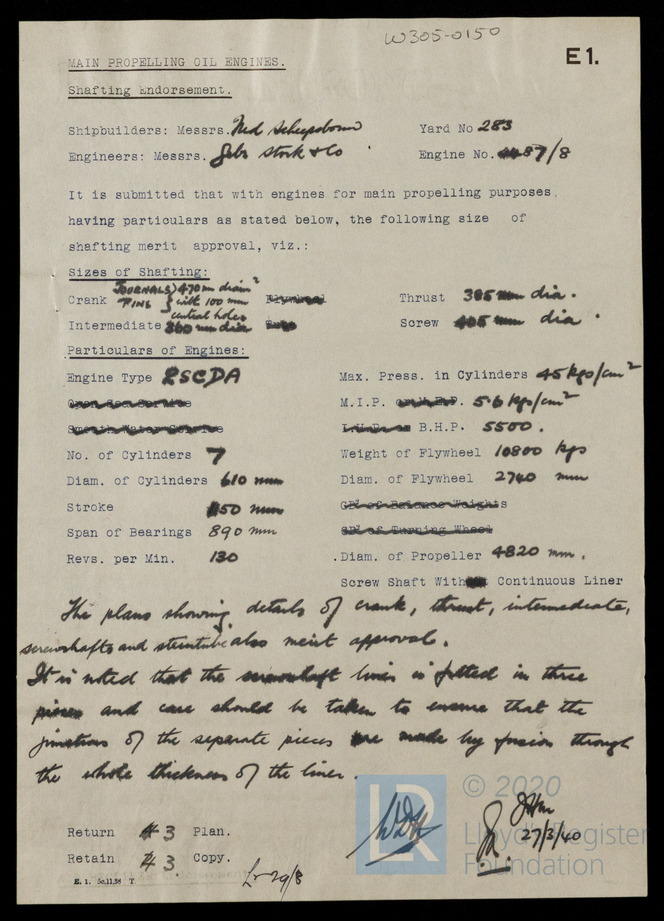 W305-0150
E1.
MAIN PROPELLING OIL ENGINES.
Shafting Endorsement.
Shipbuilders: Messrs. Ned Scheepsbouw Yard No 283
Engineers: Messrs. Gebr Stork & Co Engine No. 87/8
It is submitted that with engines for main propelling purposes,
having particulars as stated below, the following size of
shafting merit approval, viz.:
Sizes of Shafting:
Crank JOURNALS } 470 m diam Flywheel Thrust 385 mm dia.
PINS } with 100 mm
central holes
Intermediate 360 mm dia Screw 405 mm dia
Particulars of Engines:
Engine Type 2SCDA Max. Press. in Cylinders 45 kgs/cm²
Open Sea Service M.I.P. 5.6 kgs/cm²
Smooth Water Service B.H.P. 5500.
No. of Cylinders 7 Weight of Flywheel 10800 kgs
Diam. of Cylinders 610 mm Diam. of Flywheel 2740 mm
Stroke 50 mm GD² of Balance Weights
Span of Bearings 890 mm GD² of Turning Wheel
Revs. per Min. 130 Diam. of Propeller 4820 mm.
Screw Shaft With Continuous Liner
The plans showing details of crank, thrust, intermediate,
screwshafts and sterntube also merit approval.
It is noted that the screwshaft liner is fitted in three
pieces and care should be taken to ensure that the
junctions of the separate pieces are made by fusion through
the whole thickness of the liner.
Return 3 Plan.
Retain 3 Copy.
E. 1. 30.11.38 T
29/8
27/3/40
LR
© 2020
Lloyd's Register
Foundation